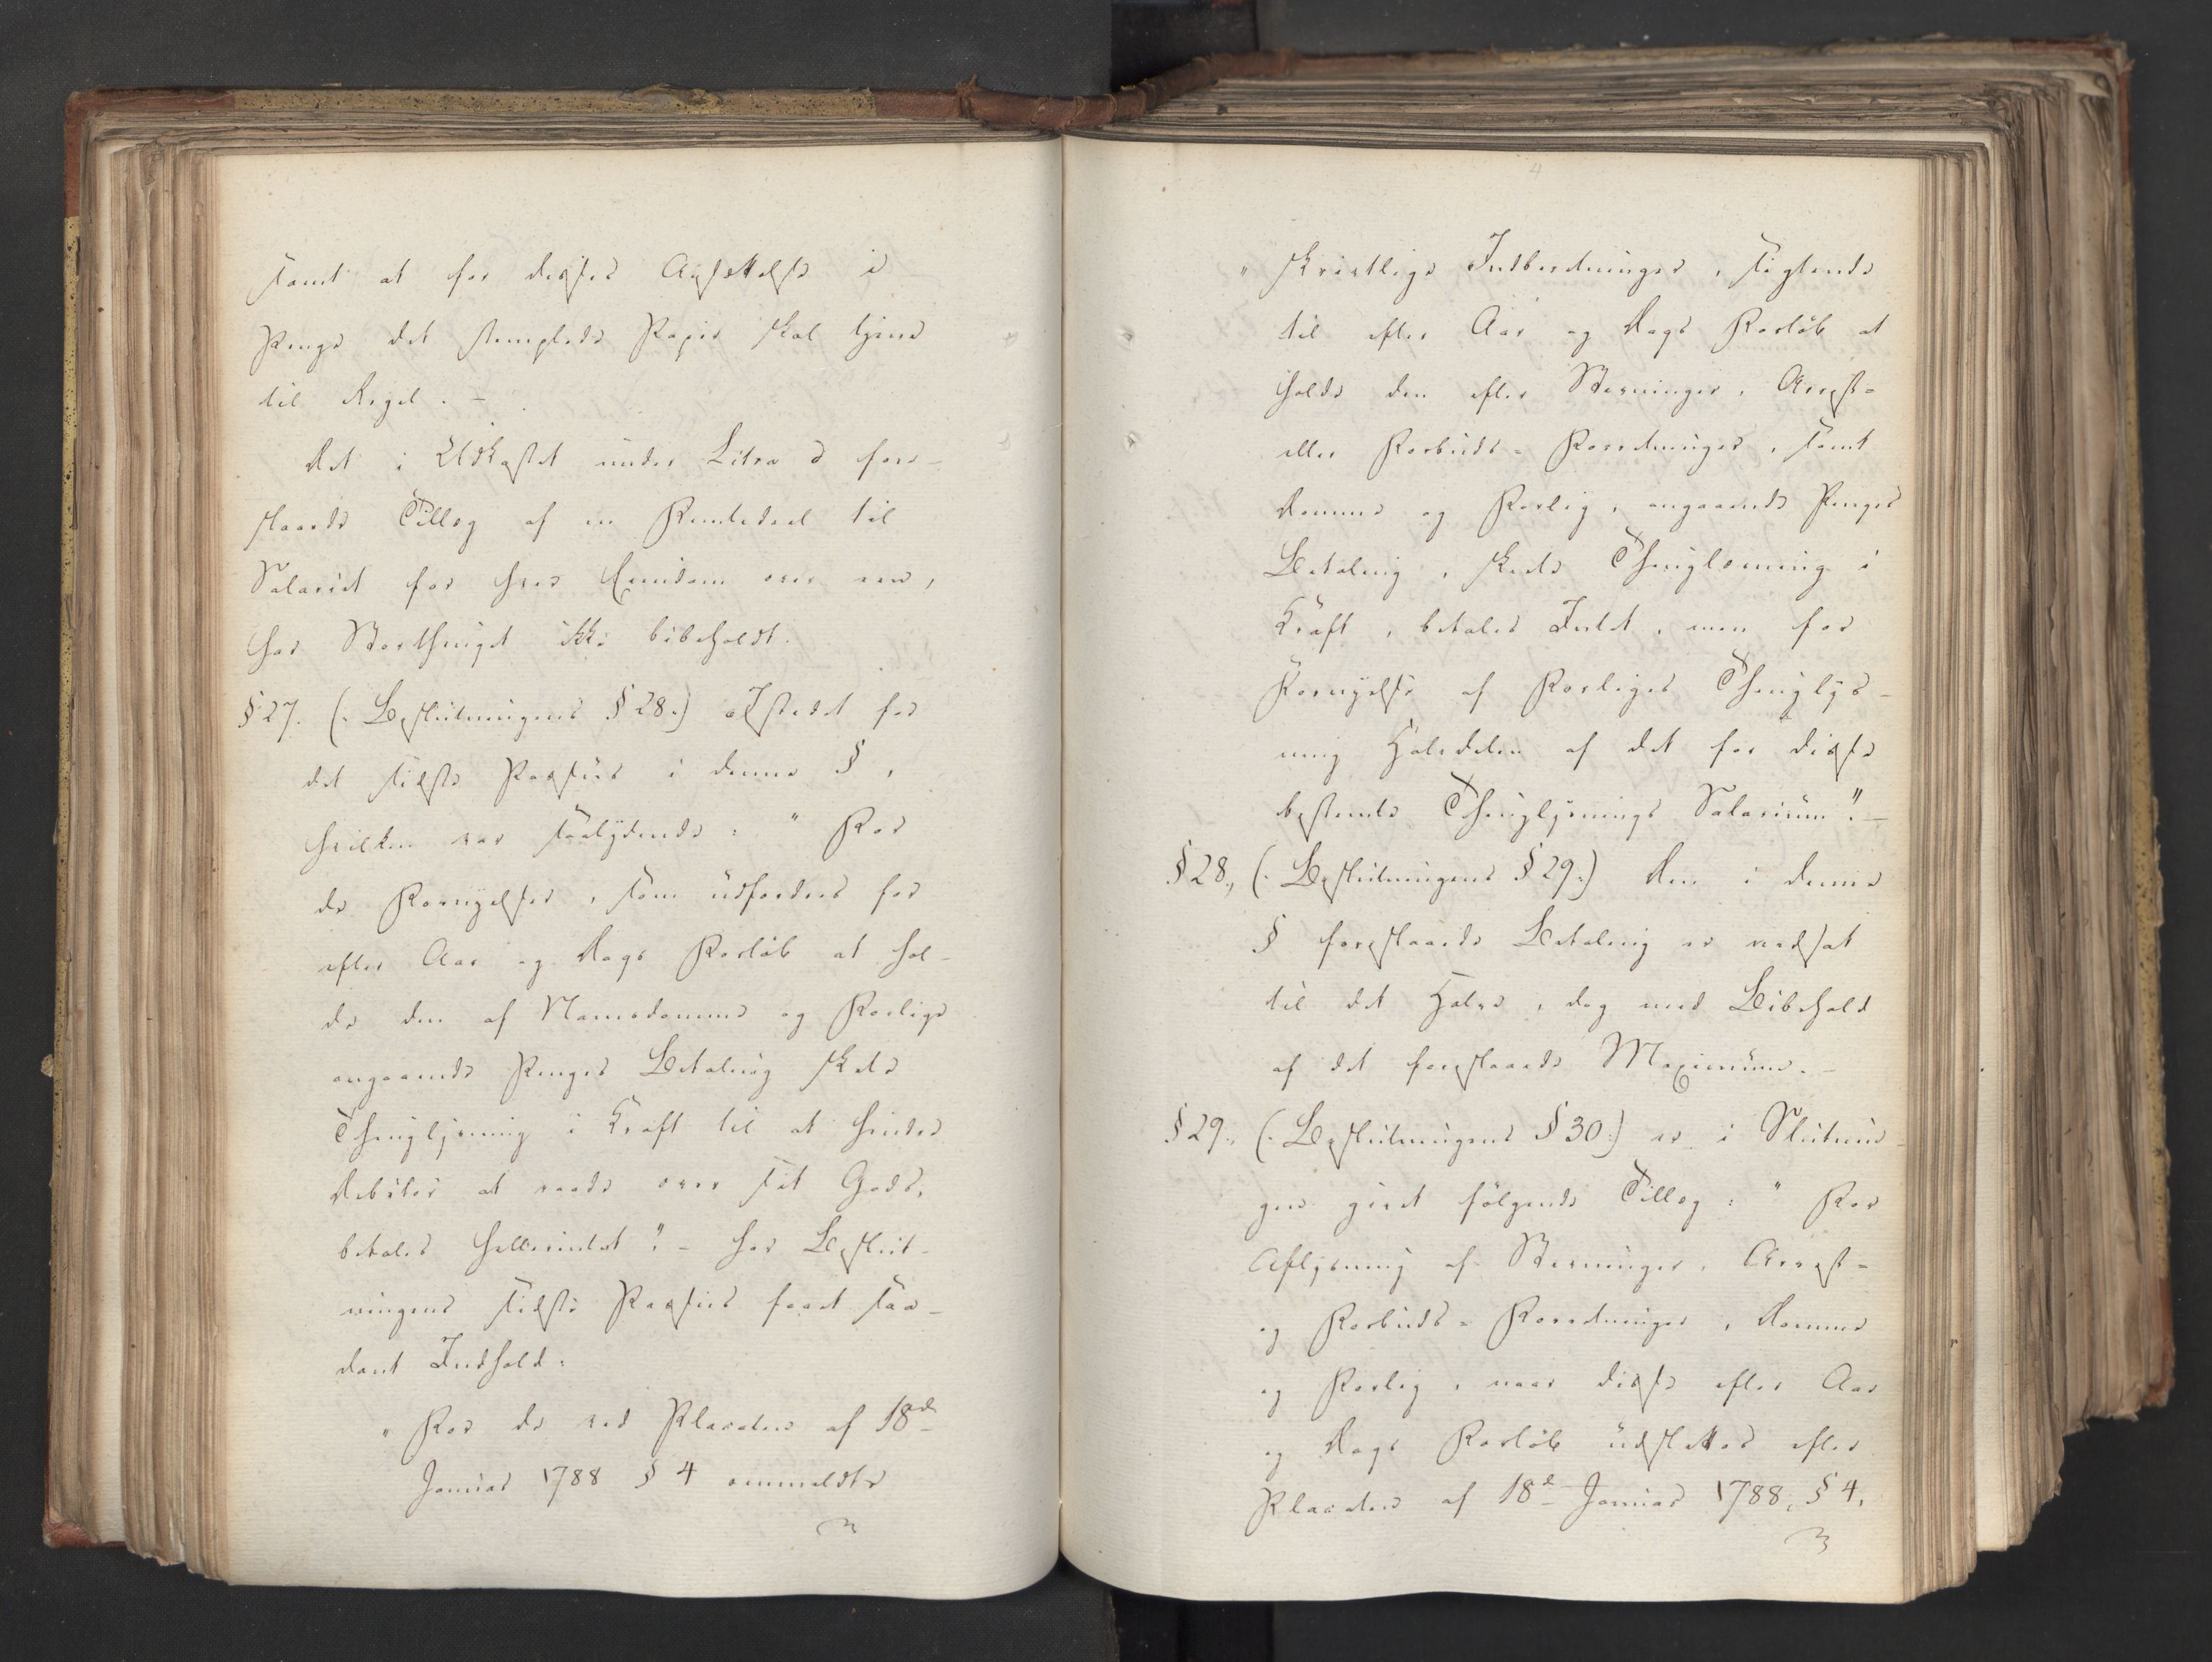 samt at for disses Ansættelse i
Penge det stemplede Papir skal tjene
til Regel. –
Det i Udkastet under Litra d fore-
slaaede Tillæg af en Femtedeel til
Salariet for hver Eiendom over een,
har Storthinget ikke bibeholdt.
§ 27. (: Beslutningens § 28 :) Istedet for
det sidste Passus i denne §,
hvilken var saalydende: " For
de Fornyelser, som udfordres for
efter Aar og Dags Forløb at hol-
de den af Navnedomme og Forlige
angaaende Penges Betaling skete
Thinglysning i Kraft til at hindre
Debitor at raade over sit Gods,
betales hellerintet". – har Beslut-
ningens sidste Passus faaet saa-
dant Indhold:
" For de ved Placaten af 18de
Januar 1788 § 4 ommeldte
4
" skriftlige Indberetninger, sigtende
til efter Aar og Dags Forløb at
holde den efter Stevninger, Arrest-
eller Forbuds- Forretninger, samt
Domme og Forlig, angaaende Penges
Betaling, skete Thinglæsning i
Kraft, betales Intet, men for
Fornyelse af Forliges Thinglys-
ning Halvdelen af det for disse
bestemte Thinglysnings Salarium". –
§ 28., (: Beslutningens § 29 :) Den i denne
§ foreslaaede Betaling er nedsat
til det Halve, dog med Bibehold
af det foreslaaede Maximum. –
§ 29., (: Beslutningens § 30 :) er i Slutnin-
gen givet følgende Tillæg: " For
Aflysning af Stevninger, Arrest-
og Forbuds- Forretninger, Domme
og Forlig, naar disse efter Aar
og Dags Forløb udslettes efter
Placaten af 18de Januar 1788, § 4,